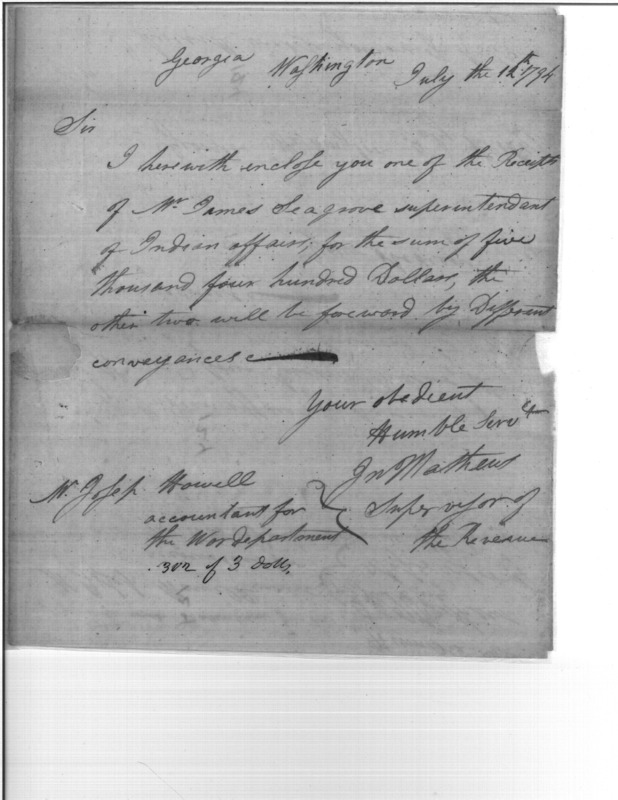 Georgia Washington July the 12th 1794
Sir
I herewith enclose you one of the Receipts
of Mr James Seagrove superintendant
of Indian affairs, for the sum of five
thousand four hundred Dollars, the
other two will be foreward by Different
conveyances
Your obedient
Humble Servt
Jn Mathews
Supervisor of
the Revenue
Mr. Josep. Howell
accountant for
the War department
302 of 3 dolls,